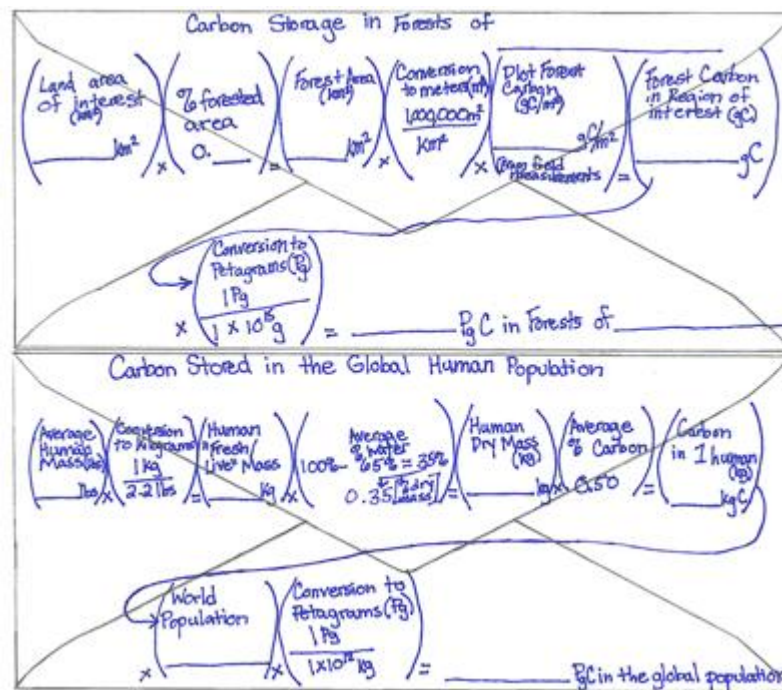 Carbon Storage in Forests of
Land area of interest (km²) km²
x
% forested area 0.
=
Forest Area (km²) km²
x
Conversion to meters (m²) 1,000,000 m² / km²
x
Plot Forest Carbon (gC/m²) gC/m² from field measurements
=
Forest Carbon in Region of interest (gC) gC
x
Conversion to Petagrams (Pg)
1 Pg
1 x 10¹⁵ g
= Pg C in Forests of
Carbon Stored in the Global Human Population
Average Human Mass (lbs) lbs
x
Conversion to Kilograms 1 kg / 2.2 lbs
=
Human "Fresh/Live" Mass kg
x
Average % water 100% - 65% = 35% 0.35 [% dry mass]
=
Human Dry Mass (kg) kg
x
Average % Carbon 0.50
=
Carbon in 1 human (kg) kgC
x
World Population
x
Conversion to Petagrams (Pg)
1 Pg
1x10¹² kg
= PgC in the global population